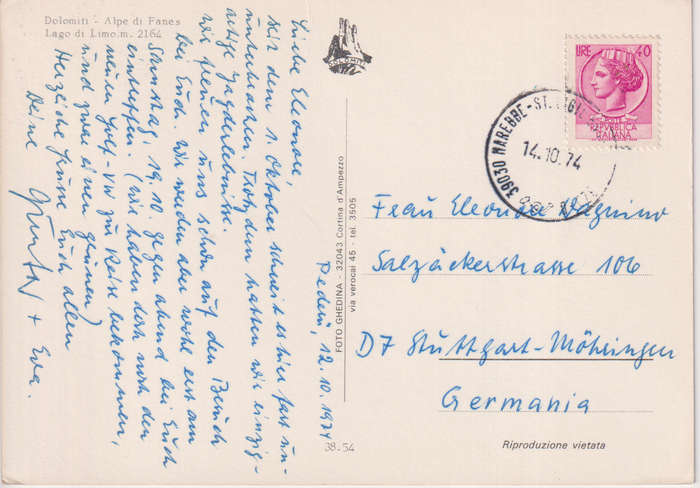 Dolomiti - Alpe di Fanes
Lago di Limo m. 2164
DOLOMITI
LIRE 40
REPVBBLICA
ITALIANA
39030 MAREBBE - ST. VIGIL
14.10.74
Pederü, 12.10.1974
Liebe Eleonore,
seit dem 1. Oktober schneit es hier fast un-
unterbrochen. Trotzdem hatten wir einzig-
artige Jagderlebnisse.
Wir freuen uns schon auf den Besuch
bei Euch. Wir werden aber wohl erst am
Samstag, 19.10. gegen abend bei Euch
eintreffen. (Wir haben doch noch den
neuen Golf-VW zu Reise bekommen,
und zwar einen grünen)
Herzliche Grüsse Euch allen
Deine Günter + Eva.
FOTO GHEDINA - 32043 Cortina d'Ampezzo
via verocai 45 - tel. 3505
Frau Eleonore
Salzäckerstrasse 106
D7 Stuttgart-Möhringen
Germania
38-54
Riproduzione vietata